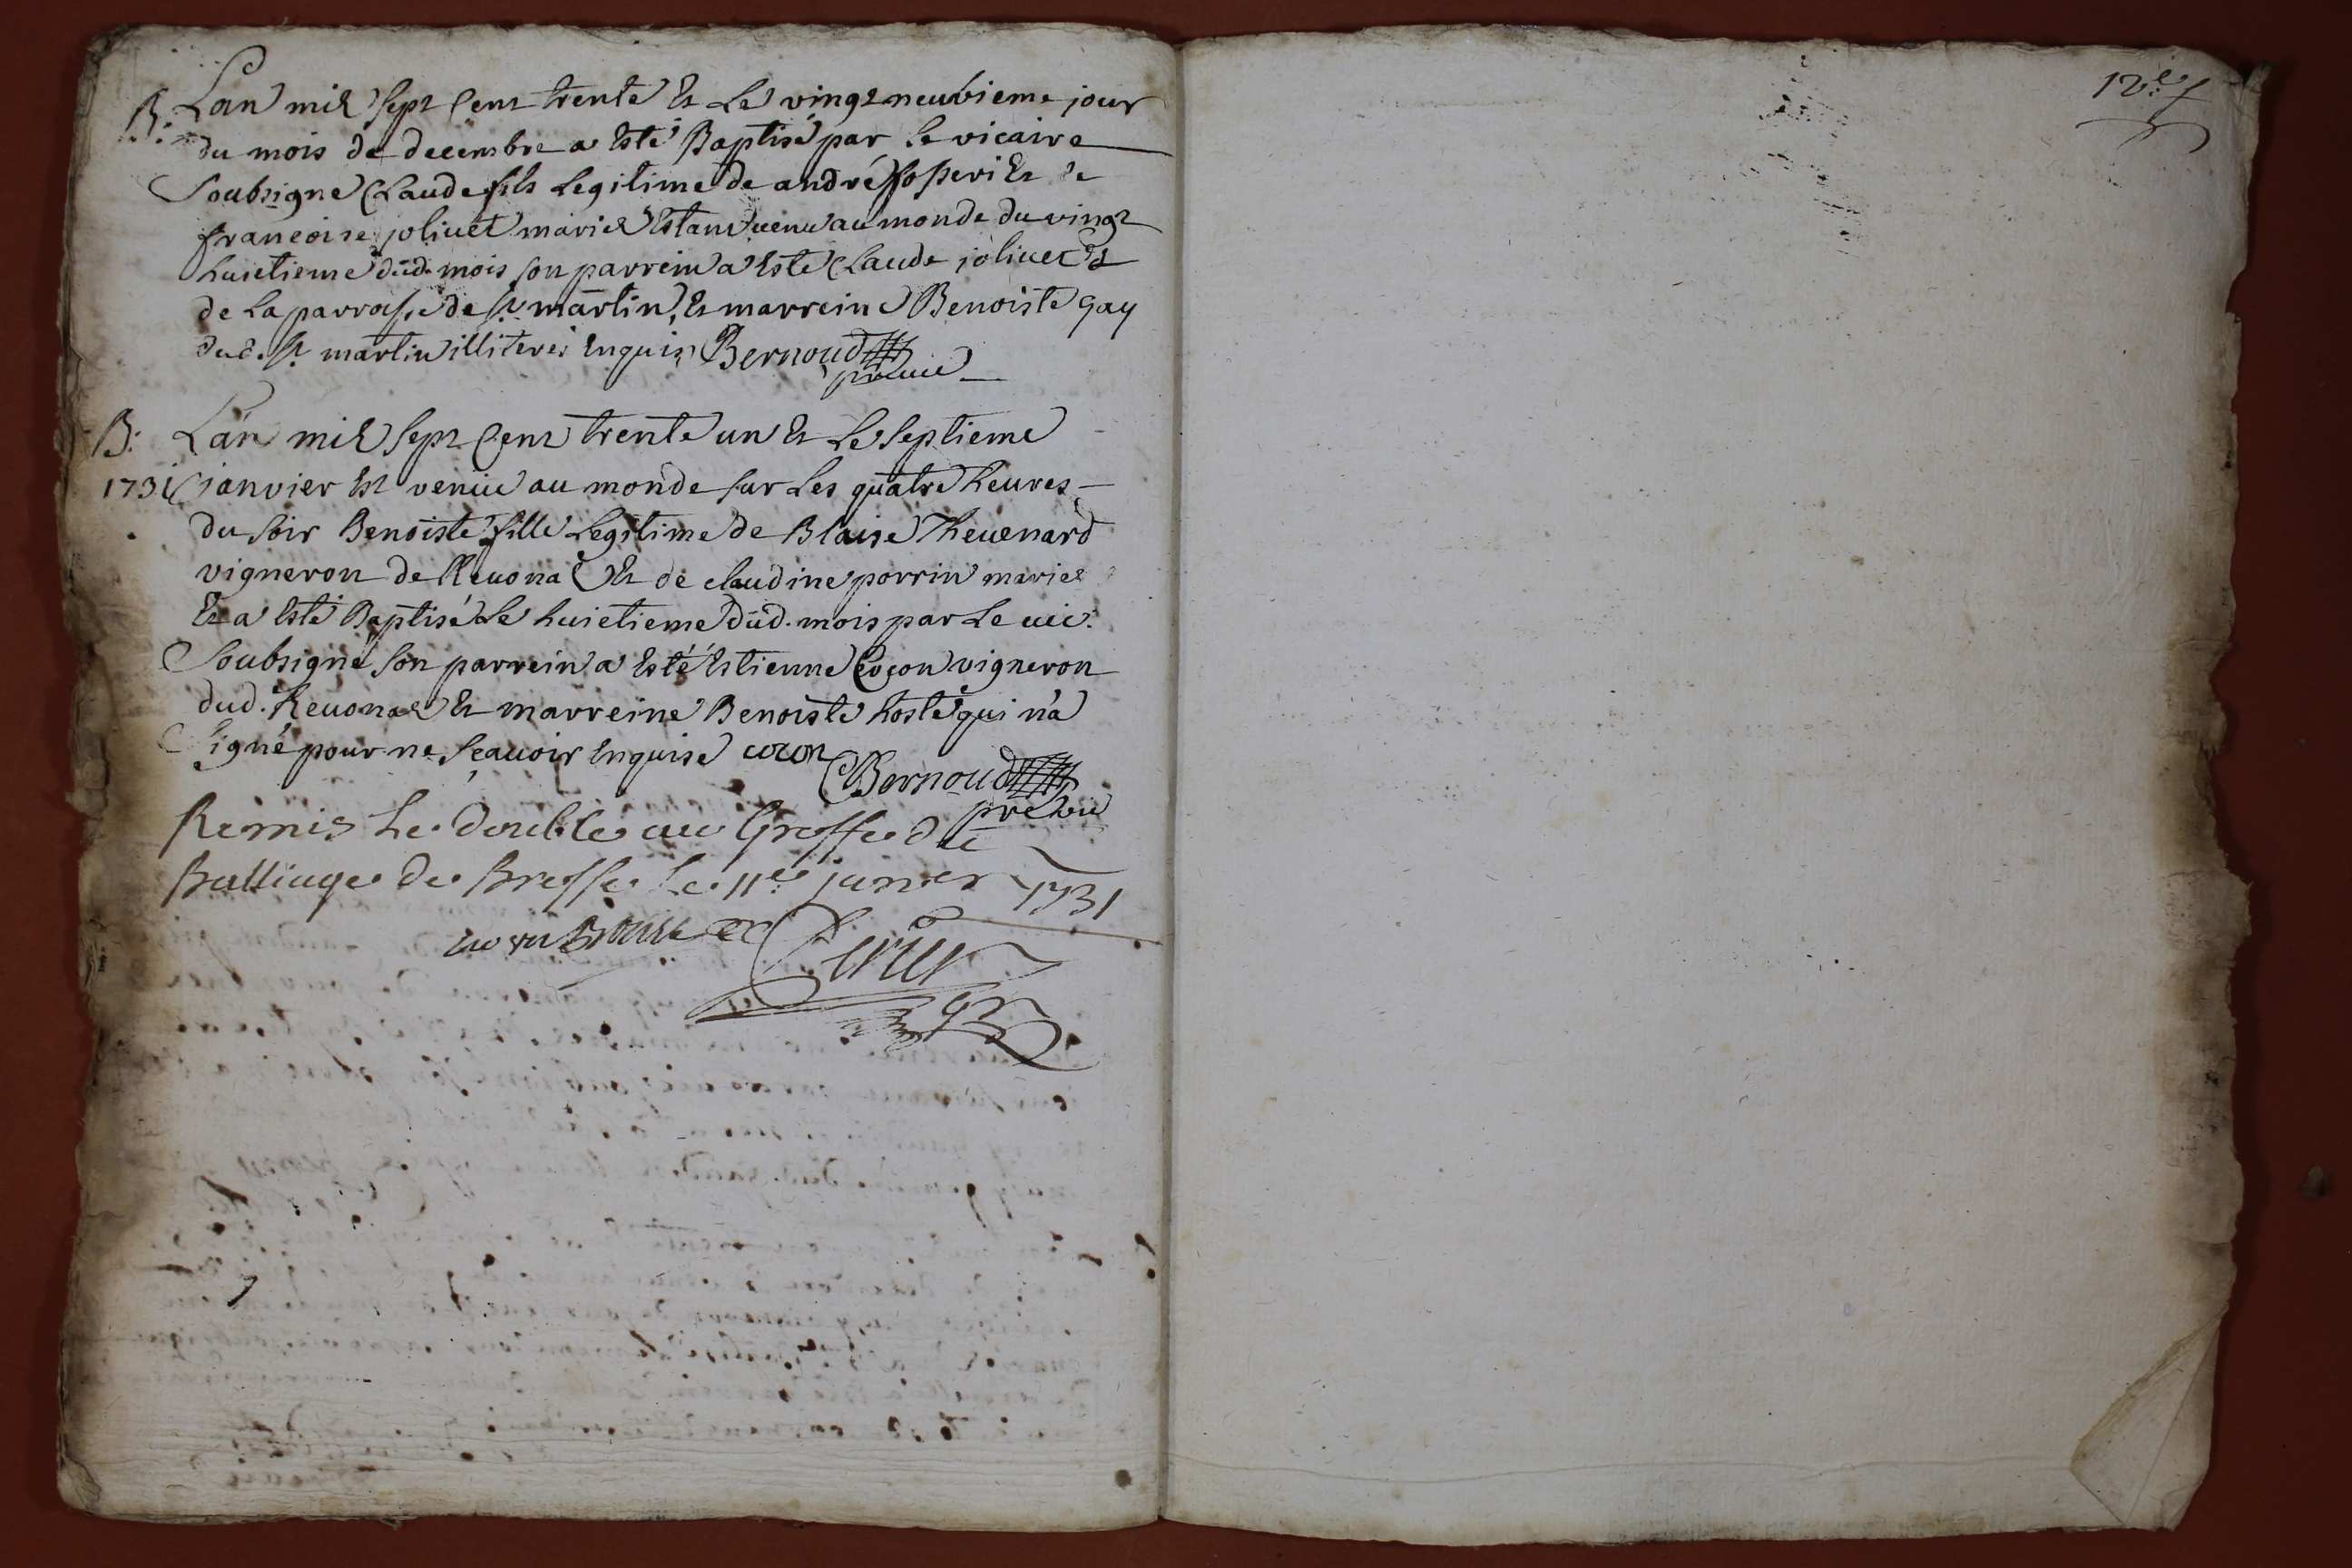 B: Lan mil sept cent trente et le vingt neuvieme jour
du mois de decembre a esté Baptisé par le vicaire
soubsigné Claude fils legitime de andré et de
francoise joliuet mariez estant uenu au monde du vingt
huictieme dud. mois son parrein a esté Claude joliuet
de la parroisse de st. martin, et marreine Benoiste gay
dud. st. martin illiteres enquis Bernoud
pr. vic.
B: Lan mil sept cent trente un et le septieme
1731 janvier est venüe au monde sur les quatre heures
du soir Benoiste fille legitime de Blaise Theuenard
vigneron de Reuona et de claudine porrin mariez
et a esté Baptisé le huictieme dud. mois par le uic.
soubsigné son parrein a esté Estienne Coçon vigneron
dud. Reuonas et marreine Benoiste hoste qui n'a
signé pour ne sçauoir enquise cocon
Bernoud
pr. vic.
Remis le double au Greffe du
Balliage de Bresse le 11e janier 1731
12e f